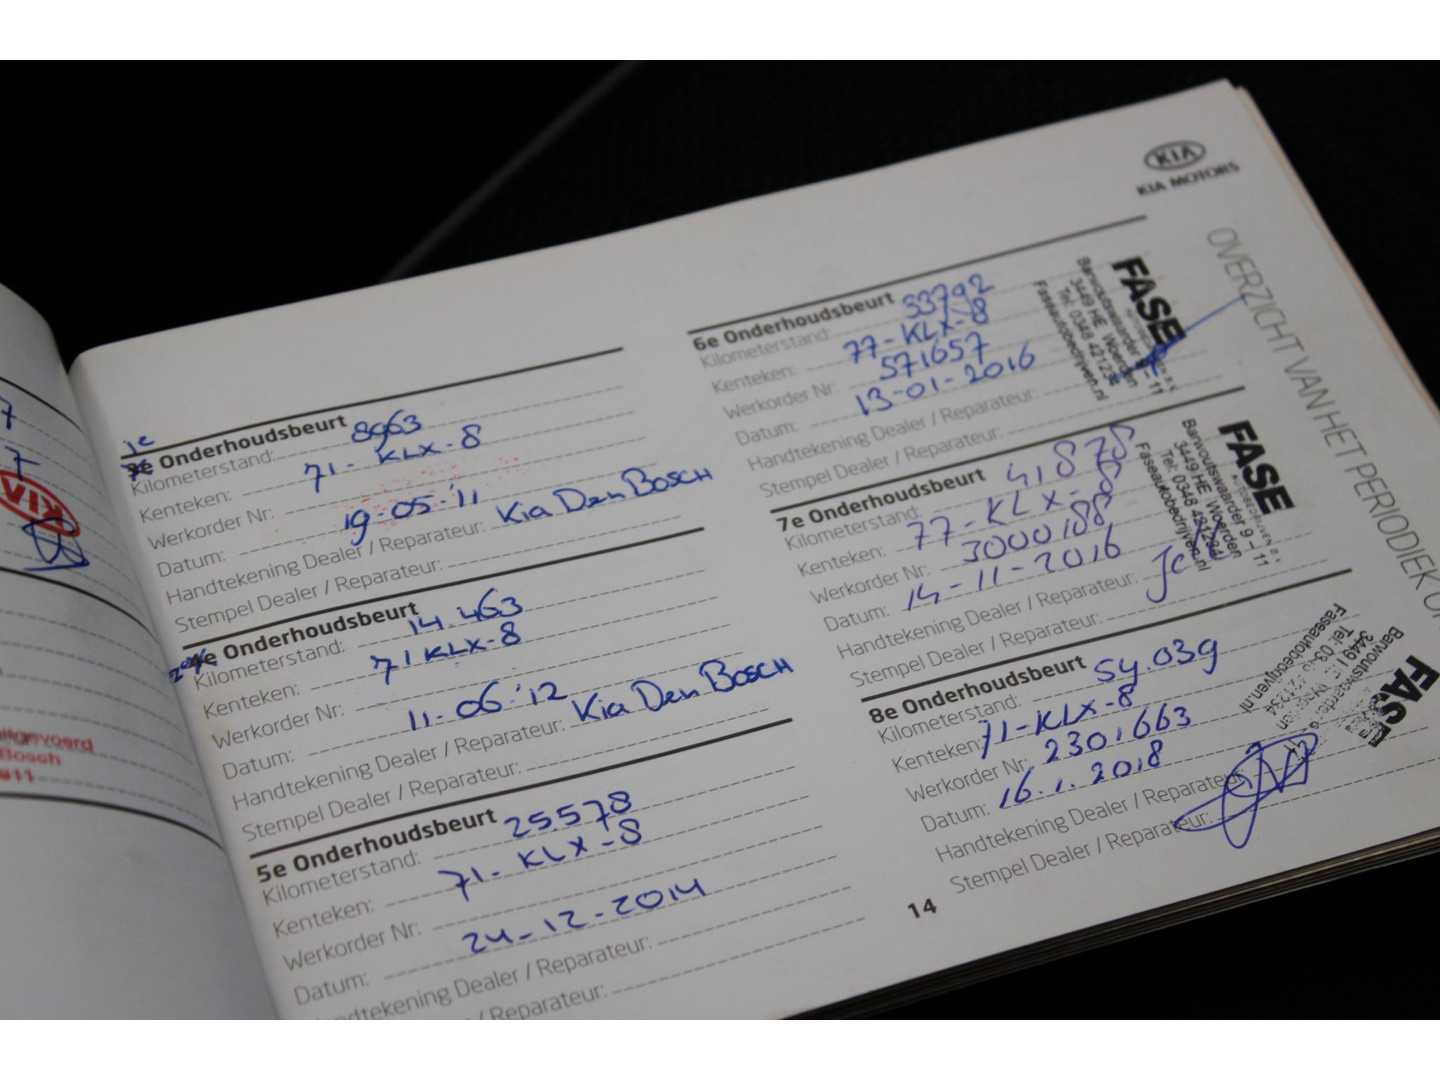 KIA
KIA MOTORS
OVERZICHT VAN HET PERIODIEK
1e
3e Onderhoudsbeurt
Kilometerstand: 8963
Kenteken: 71-KLX-8
Werkorder Nr:
Datum: 19-05-'11
Handtekening Dealer / Reparateur: Kia Den Bosch
Stempel Dealer / Reparateur:
4e Onderhoudsbeurt
Kilometerstand: 14.463
Kenteken: 71 KLX-8
Werkorder Nr:
Datum: 11-06-'12
Handtekening Dealer / Reparateur: Kia Den Bosch
Stempel Dealer / Reparateur:
5e Onderhoudsbeurt
Kilometerstand: 25578
Kenteken: 71-KLX-8
Werkorder Nr:
Datum: 24-12-2014
Handtekening Dealer / Reparateur:
Reparateur:
6e Onderhoudsbeurt
Kilometerstand: 33792
Kenteken: 77-KLX-8
Werkorder Nr: 571657
Datum: 13-01-2016
Handtekening Dealer / Reparateur:
Stempel Dealer / Reparateur:
FASE
Barwoutswaarder 9 - 11
3449 HE Woerden
Tel. 0348 421234
Faseautobedrijven.nl
7e Onderhoudsbeurt
Kilometerstand: 41878
Kenteken: 77-KLX-8
Werkorder Nr: 3000188
Datum: 14-11-2016
Handtekening Dealer / Reparateur:
Stempel Dealer / Reparateur:
FASE
AUTOBEDRIJVEN B.V.
Barwoutswaarder 9 - 11
3449 HE Woerden
Tel. 0348 421234
Faseautobedrijven.nl
8e Onderhoudsbeurt
Kilometerstand: 54.039
Kenteken: 71-KLX-8
Werkorder Nr: 2301663
Datum: 16.1.2018
Handtekening Dealer / Reparateur:
Stempel Dealer / Reparateur:
FASE
Barwoutswaarder
Faseautobedrijven.nl
14
7
7
KIA
Bosch